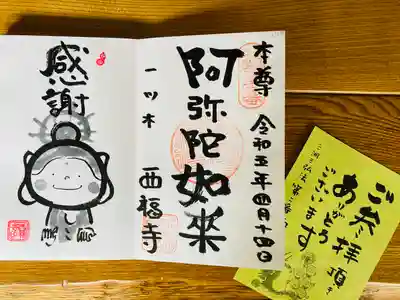 感謝
本尊
令和五年四月十四日
阿弥陀如来
一ツ木
西福寺
ご参拝頂き
ありがとう
ございます